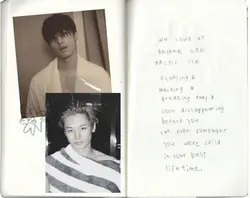 WE COULD All
BECOME LIKE
ARCTIC ICE
FLOATING &
MELTING &
BREAKING AWAY &
SOON DISAPPEARING
BEFORE YOU
CAN EVEN REMEMBER
YOU WERE COLD
IN YOUR PAST
LIFETIME.